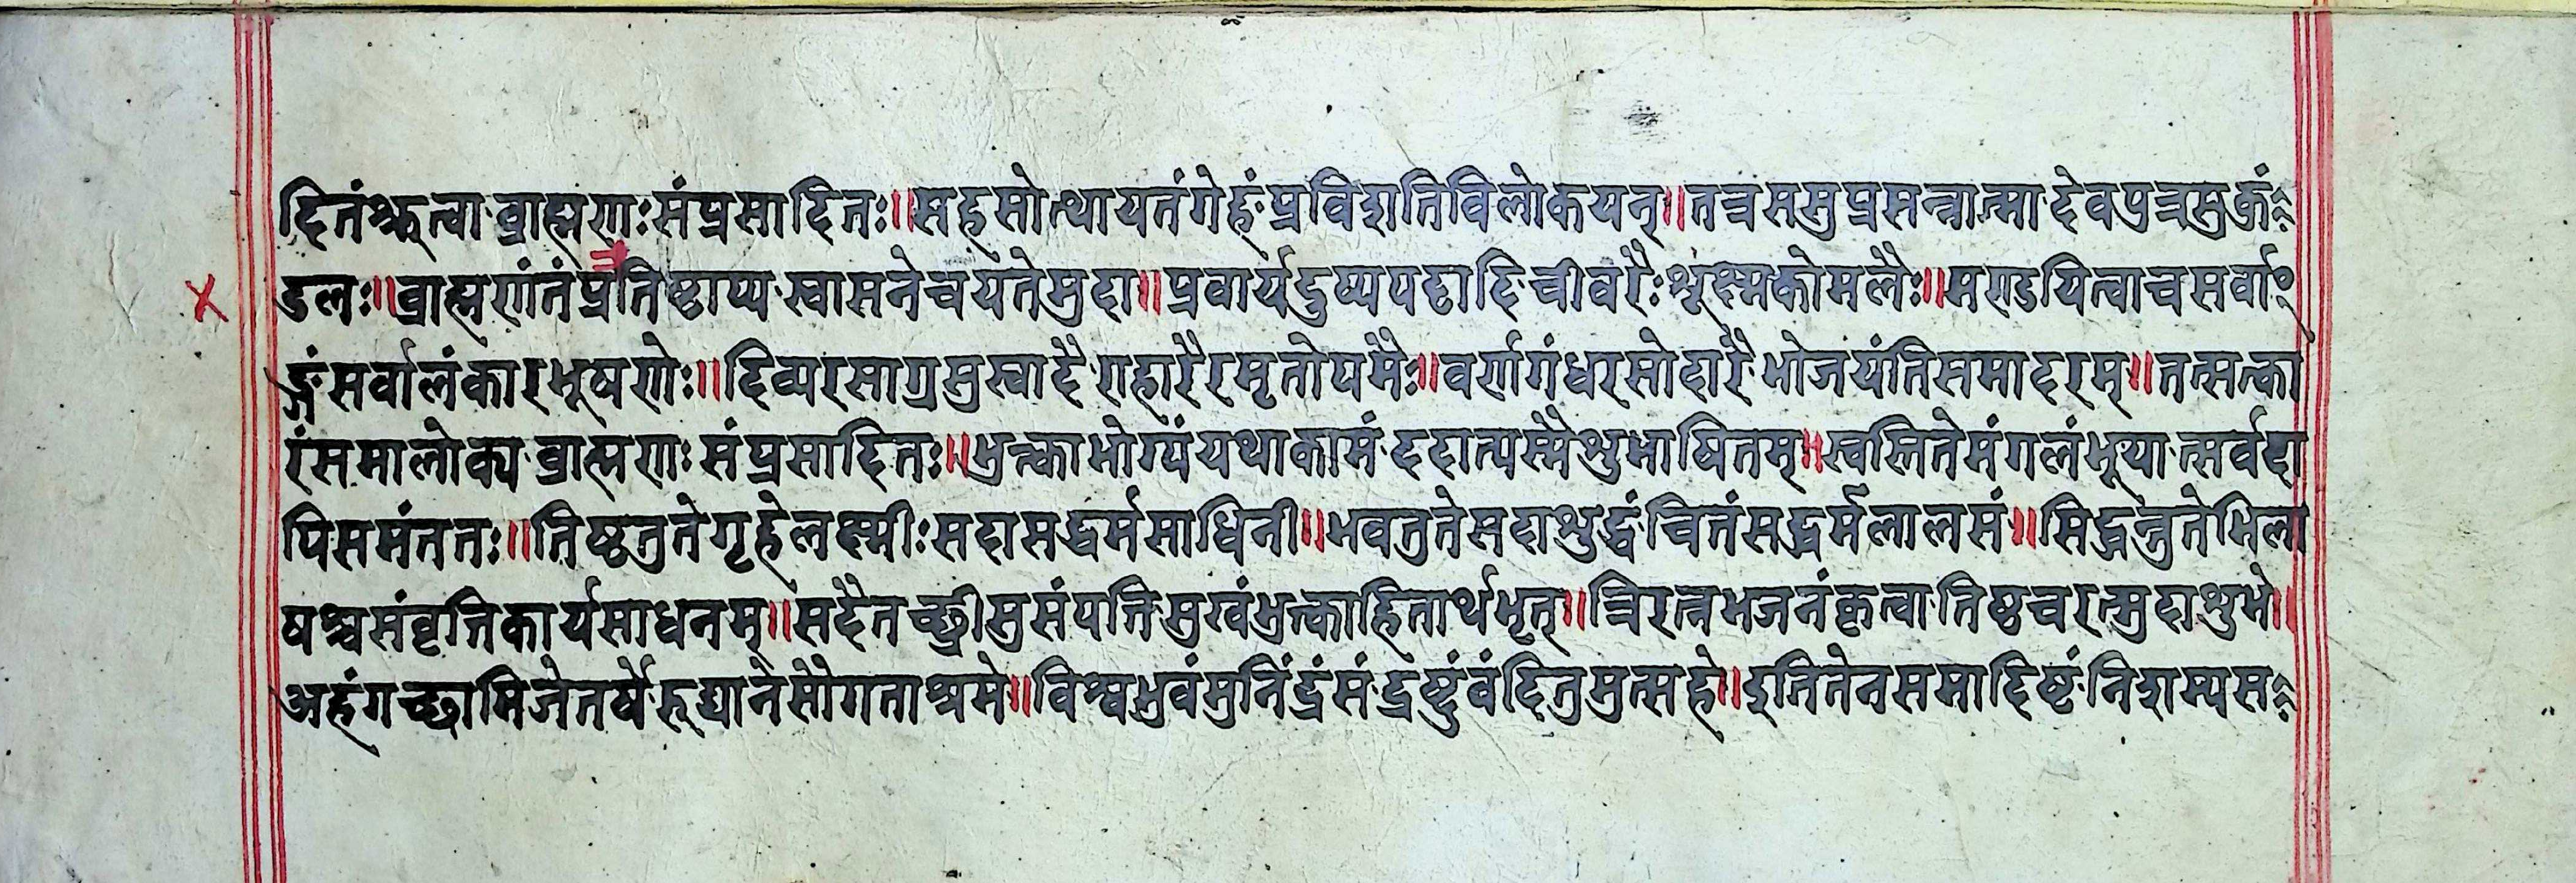 दितंश्रुत्वाब्राह्मणःसंप्रसादितः॥सहसोत्थायतंगेहंप्रविशतिविलोकयन्॥तत्रससुप्रसन्नात्मादेवपुत्रसुकुं
डलः॥ब्राह्मणंतंप्रतिष्ठाप्यस्वासनेचयतेमुदा॥प्रवार्यदुष्यपट्टादिचीवरैःश्लक्ष्मकोमलैः॥मण्डयित्वाचसर्वा
ङ्गंसर्वालंकारभूषणेः॥दिव्यरसाग्रसुस्वादैराहारैरमृतोपमैः॥वर्णगंधरसोदारैभोजयंतिसमादरम्॥तत्सत्का
रंसमालोक्यब्राह्मणःसंप्रसादितः॥भुक्त्वाभोग्यंयथाकामंददात्यस्मैशुभाषितम्॥स्वस्तितेमंगलंभूयात्सर्वदा
पिसमंततः॥तिष्ठतुतेगृहेलक्ष्मीःसदासद्धर्मसाधिनी॥भवतुतेसदाशुद्धंचितंसद्धर्मलालसं॥सिद्धन्तुतेभिला
षश्चसंवृत्तिकार्यसाधनम्॥सदैतच्छ्रीसुसंपत्तिसुखंभुक्त्वाहितार्थभृत्॥त्रिरत्नभजनंकृत्वातिष्ठचरत्मुदाशुभे॥
अहंगच्छामिजेतर्षेरुद्यानेसौगताश्रमे॥विश्वभुवंमुनिंद्रंसंद्रष्टुंवंदितुमुत्सहे॥इतितेनसमादिष्टंनिशम्यस